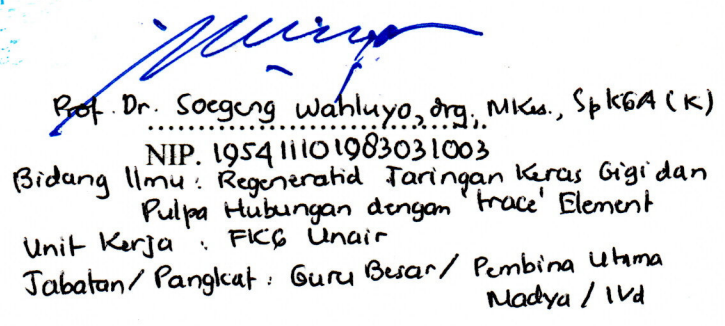 Prof. Dr. Soegeng Wahluyo, drg., MKes., SpKGA (K)
NIP. 195411101983031003
Bidang Ilmu : Regeneratid Jaringan Keras Gigi dan
Pulpa Hubungan dengan 'trace' Element
Unit Kerja : FKG Unair
Jabatan / Pangkat : Guru Besar / Pembina Utama
Madya / IVd